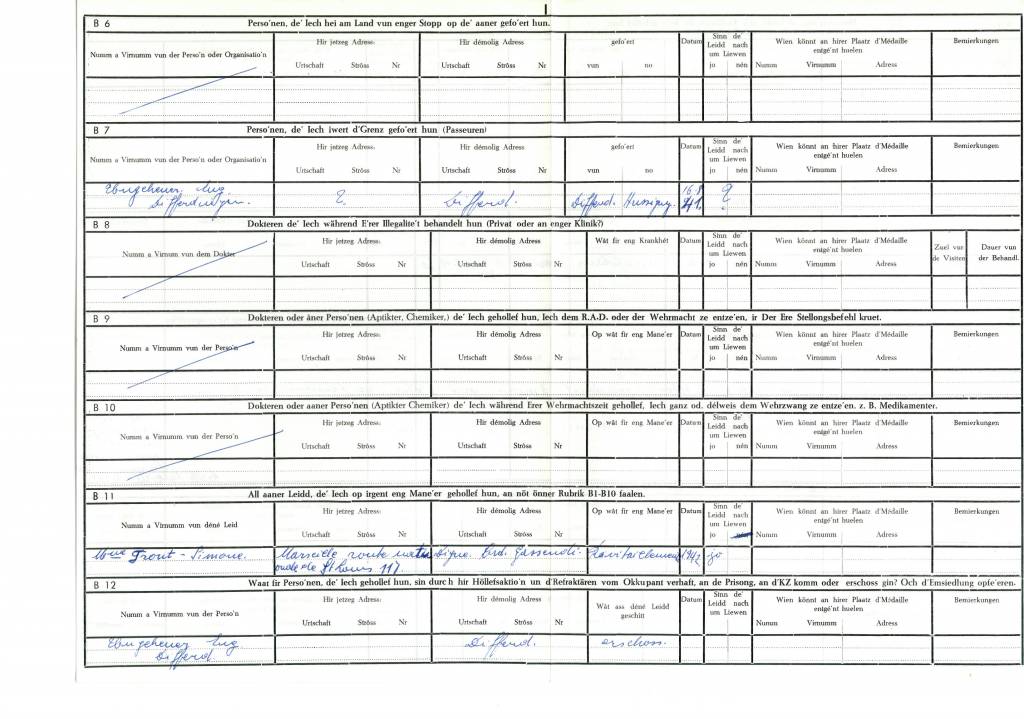 B 6 Perso'nen, de' Iech hei am Land vun enger Stopp op de' aaner gefo'ert hun.
Numm a Virnumm vun der Perso'n oder Organisatio'n Hir jetzeg Adress: Hir démolig Adress gefo'ert Datum Sinn de' Leidd nach um Liewen Wien könnt an hirer Plaatz d'Médaille entgé'nt huelen Bemierkungen
Urtschaft Ströss Nr Urtschaft Ströss Nr vun no jo nén Numm Virnumm Adress
B 7 Perso'nen, de' Iech iwert d'Grenz gefo'ert hun (Passeuren)
Numm a Virnumm vun der Perso'n oder Organisatio'n Hir jetzeg Adress: Hir démolig Adress gefo'ert Datum Sinn de' Leidd nach um Liewen Wien könnt an hirer Plaatz d'Médaille entgé'nt huelen Bemierkungen
Urtschaft Ströss Nr Urtschaft Ströss Nr vun no jo nén Numm Virnumm Adress
Ebngeheuer Aug. ? Differd. Differd. Hussigny. 16.8 ?
Differdingen. 41.
B 8 Dokteren de' Iech während E'rer Illegalite't behandelt hun (Privat oder an enger Klinik?)
Numm a Virnum vun dem Dokter Hir jetzeg Adress: Hir démolig Adress Wât fir eng Krankhét Datum Sinn de' Leidd nach um Liewen Wien könnt an hirer Plaatz d'Médaille entgé'nt huelen Zuel vun de Visiten Dauer vun der Behandl.
Urtschaft Ströss Nr Urtschaft Ströss Nr jo nén Numm Virnumm Adress
B 9 Dokteren oder åner Perso'nen (Aptikter, Chemiker,) de' Iech gehollef hun, Iech dem R.A.D. oder der Wehrmacht ze entze'en, ir Der Ere Stellongsbefehl kruet.
Numm a Virnumm vun der Perso'n Hir jetzeg Adress: Hir démolig Adress Op wât fir eng Mane'er Datum Sinn de' Leidd nach um Liewen Wien könnt an hirer Plaatz d'Médaille entgé'nt huelen Bemierkungen
Urtschaft Ströss Nr Urtschaft Ströss Nr jo nén Numm Virnumm Adress
B 10 Dokteren oder aaner Perso'nen (Aptikter Chemiker) de' Iech während Erer Wehrmachtszeit gehollef, Iech ganz od. délweis dem Wehrzwang ze entze'en. z. B. Medikamenter.
Numm a Virnumm vun der Perso'n Hir jetzeg Adress: Hir démolig Adress Op wât fir eng Mane'er Datum Sinn de' Leidd nach um Liewen Wien könnt an hirer Plaatz d'Médaille entgé'nt huelen Bemierkungen
Urtschaft Ströss Nr Urtschaft Ströss Nr jo nén Numm Virnumm Adress
B 11 All aaner Leidd, de' Iech op irgent eng Mane'er gehollef hun, an nöt önner Rubrik B1-B10 faalen.
Numm a Virnumm vun déné Leid Hir jetzeg Adress: Hir démolig Adress Op wât fir eng Mane'er Datum Sinn de' Leidd nach um Liewen Wien könnt an hirer Plaatz d'Médaille entgé'nt huelen Bemierkungen
Urtschaft Ströss Nr Urtschaft Ströss Nr jo nén Numm Virnumm Adress
Mme Front - Simone. Marseille route Digne. Bd. Gassendi. 1942 jo
St Louis 117.
B 12 Waat fir Perso'nen, de' Iech gehollef hun, sin durch hir Höllefsaktio'n un d'Refraktären vom Okkupant verhaft, an de Prisong, an d'KZ komm oder erschoss gin? Och d'Emsiedlung opfe'eren.
Numm a Virnumm vun der Perso'n Hir jetzeg Adress: Hir démolig Adress Wât ass déné Leidd geschitt Datum Sinn de' Leidd nach um Liewen Wien könnt an hirer Plaatz d'Médaille entgé'nt huelen Bemierkungen
Urtschaft Ströss Nr Urtschaft Ströss Nr jo nén Numm Virnumm Adress
Ebngeheuer Aug Differd. erschoss.
Differd